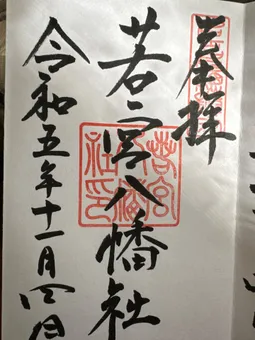 奉拝
若宮八幡社
令和五年十一月四日